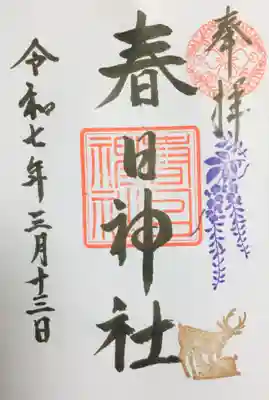 奉拝
春日神社
令和七年三月十三日